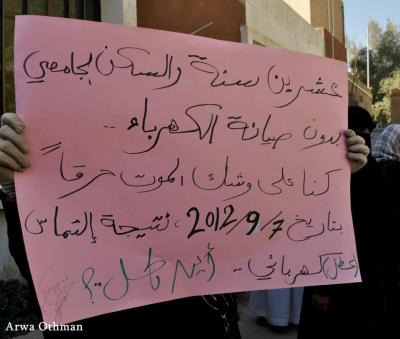 عشرين سنة والسكن الجامعي
بدون صيانة الكهرباء ..
كنا على وشك الموت حرقاً
بتاريخ 2012/9/7، نتيجة إلتماس
(عطل) كهربائي ..
Arwa Othman